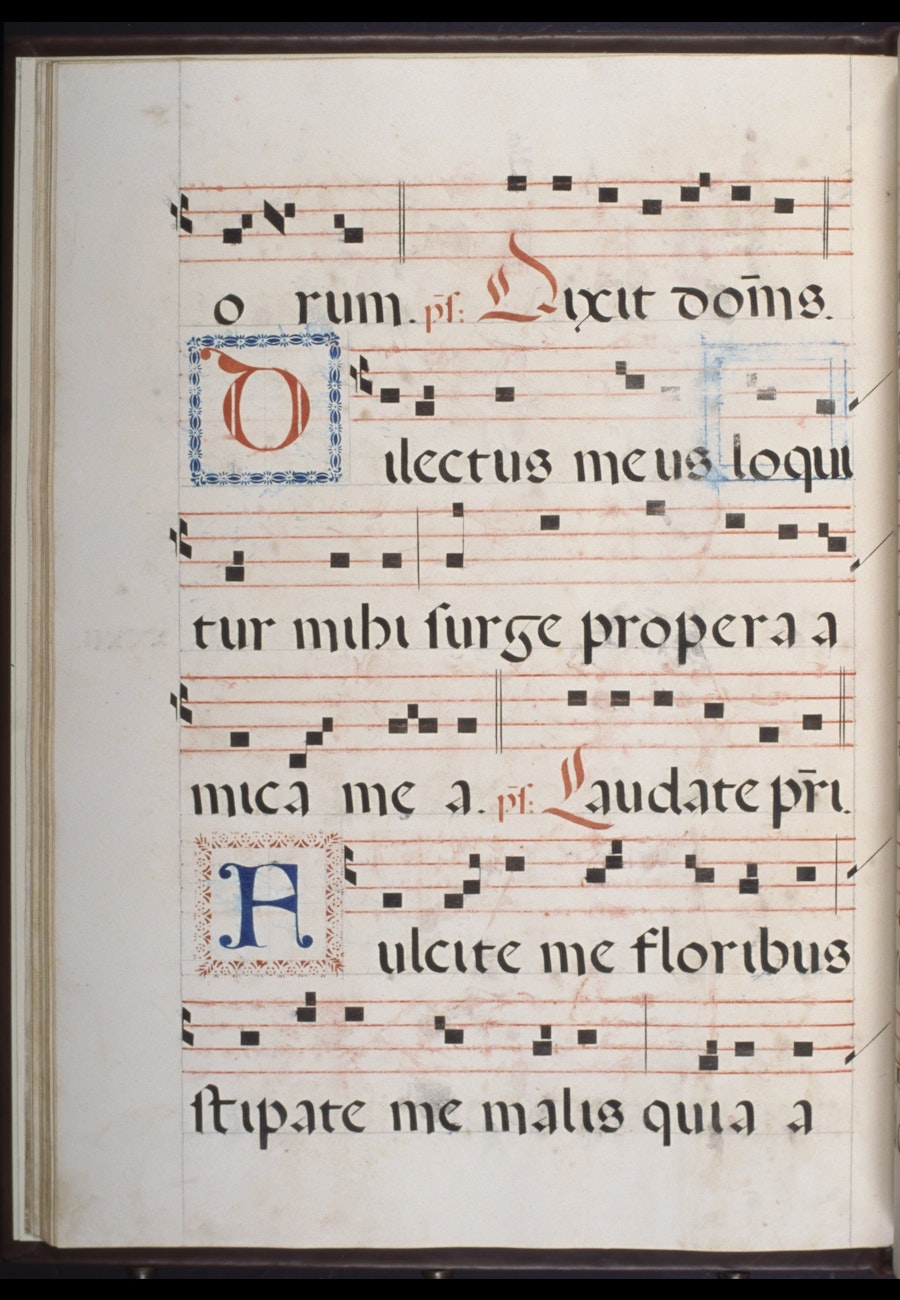 o rum. p̄s: Dixit dom̄s.
Dilectus meus loqui
tur mihi surge propera a
mica me a. p̄s: Laudate p̄ri.
Fulcite me floribus
stipate me malis quia a